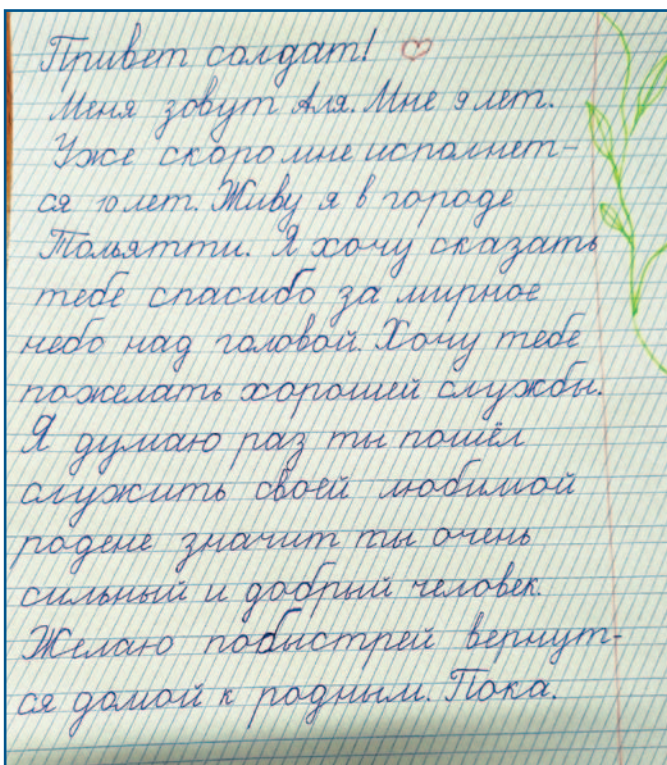 Привет солдат!
Меня зовут Аля. Мне 9 лет.
Уже скоро мне исполнет-
ся 10 лет. Живу я в городе
Тольятти. Я хочу сказать
тебе спасибо за мирное
небо над головой. Хочу тебе
пожелать хорошей службы.
Я думаю раз ты пошёл
служить своей любимой
родене значит ты очень
сильный и добрый человек.
Желаю побыстрей вернут-
ся домой к родным. Пока.